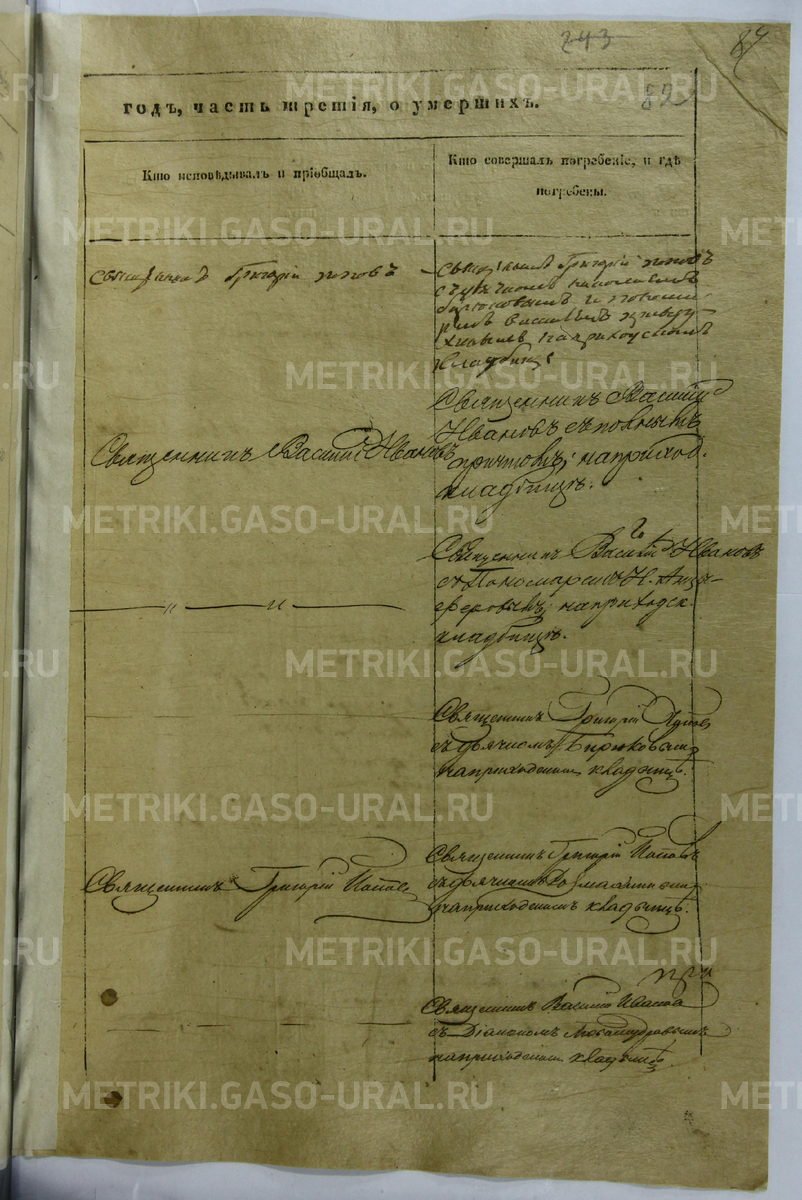 243
84
82
годъ, часть третія, о умершихъ.
Кто исповѣдывалъ и пріобщалъ.
Кто совершалъ погребеніе, и гдѣ
погребены.
Священникъ Григорій Поповъ
Священникъ Григорій Поповъ
кладбищѣ
Священникъ Василій Ивановъ
Священникъ Василій
Ивановъ съ полнымъ
причтомъ; на приход.
кладбищѣ.
Священникъ Василій Ивановъ
съ Пономаремъ Н. Анци-
феровымъ; на приходск.
кладбищѣ.
Священникъ Григорій
съ дьячкомъ Бирюковымъ
на приходскомъ кладбищѣ.
Священникъ Григорій Поповъ
Священникъ Григорій Поповъ
съ дьячкомъ
на приходскомъ кладбищѣ.
при
Священникъ Василій Ивановъ
съ Діакономъ
на приходскомъ кладбищѣ.
METRIKI.GASO-URAL.RU